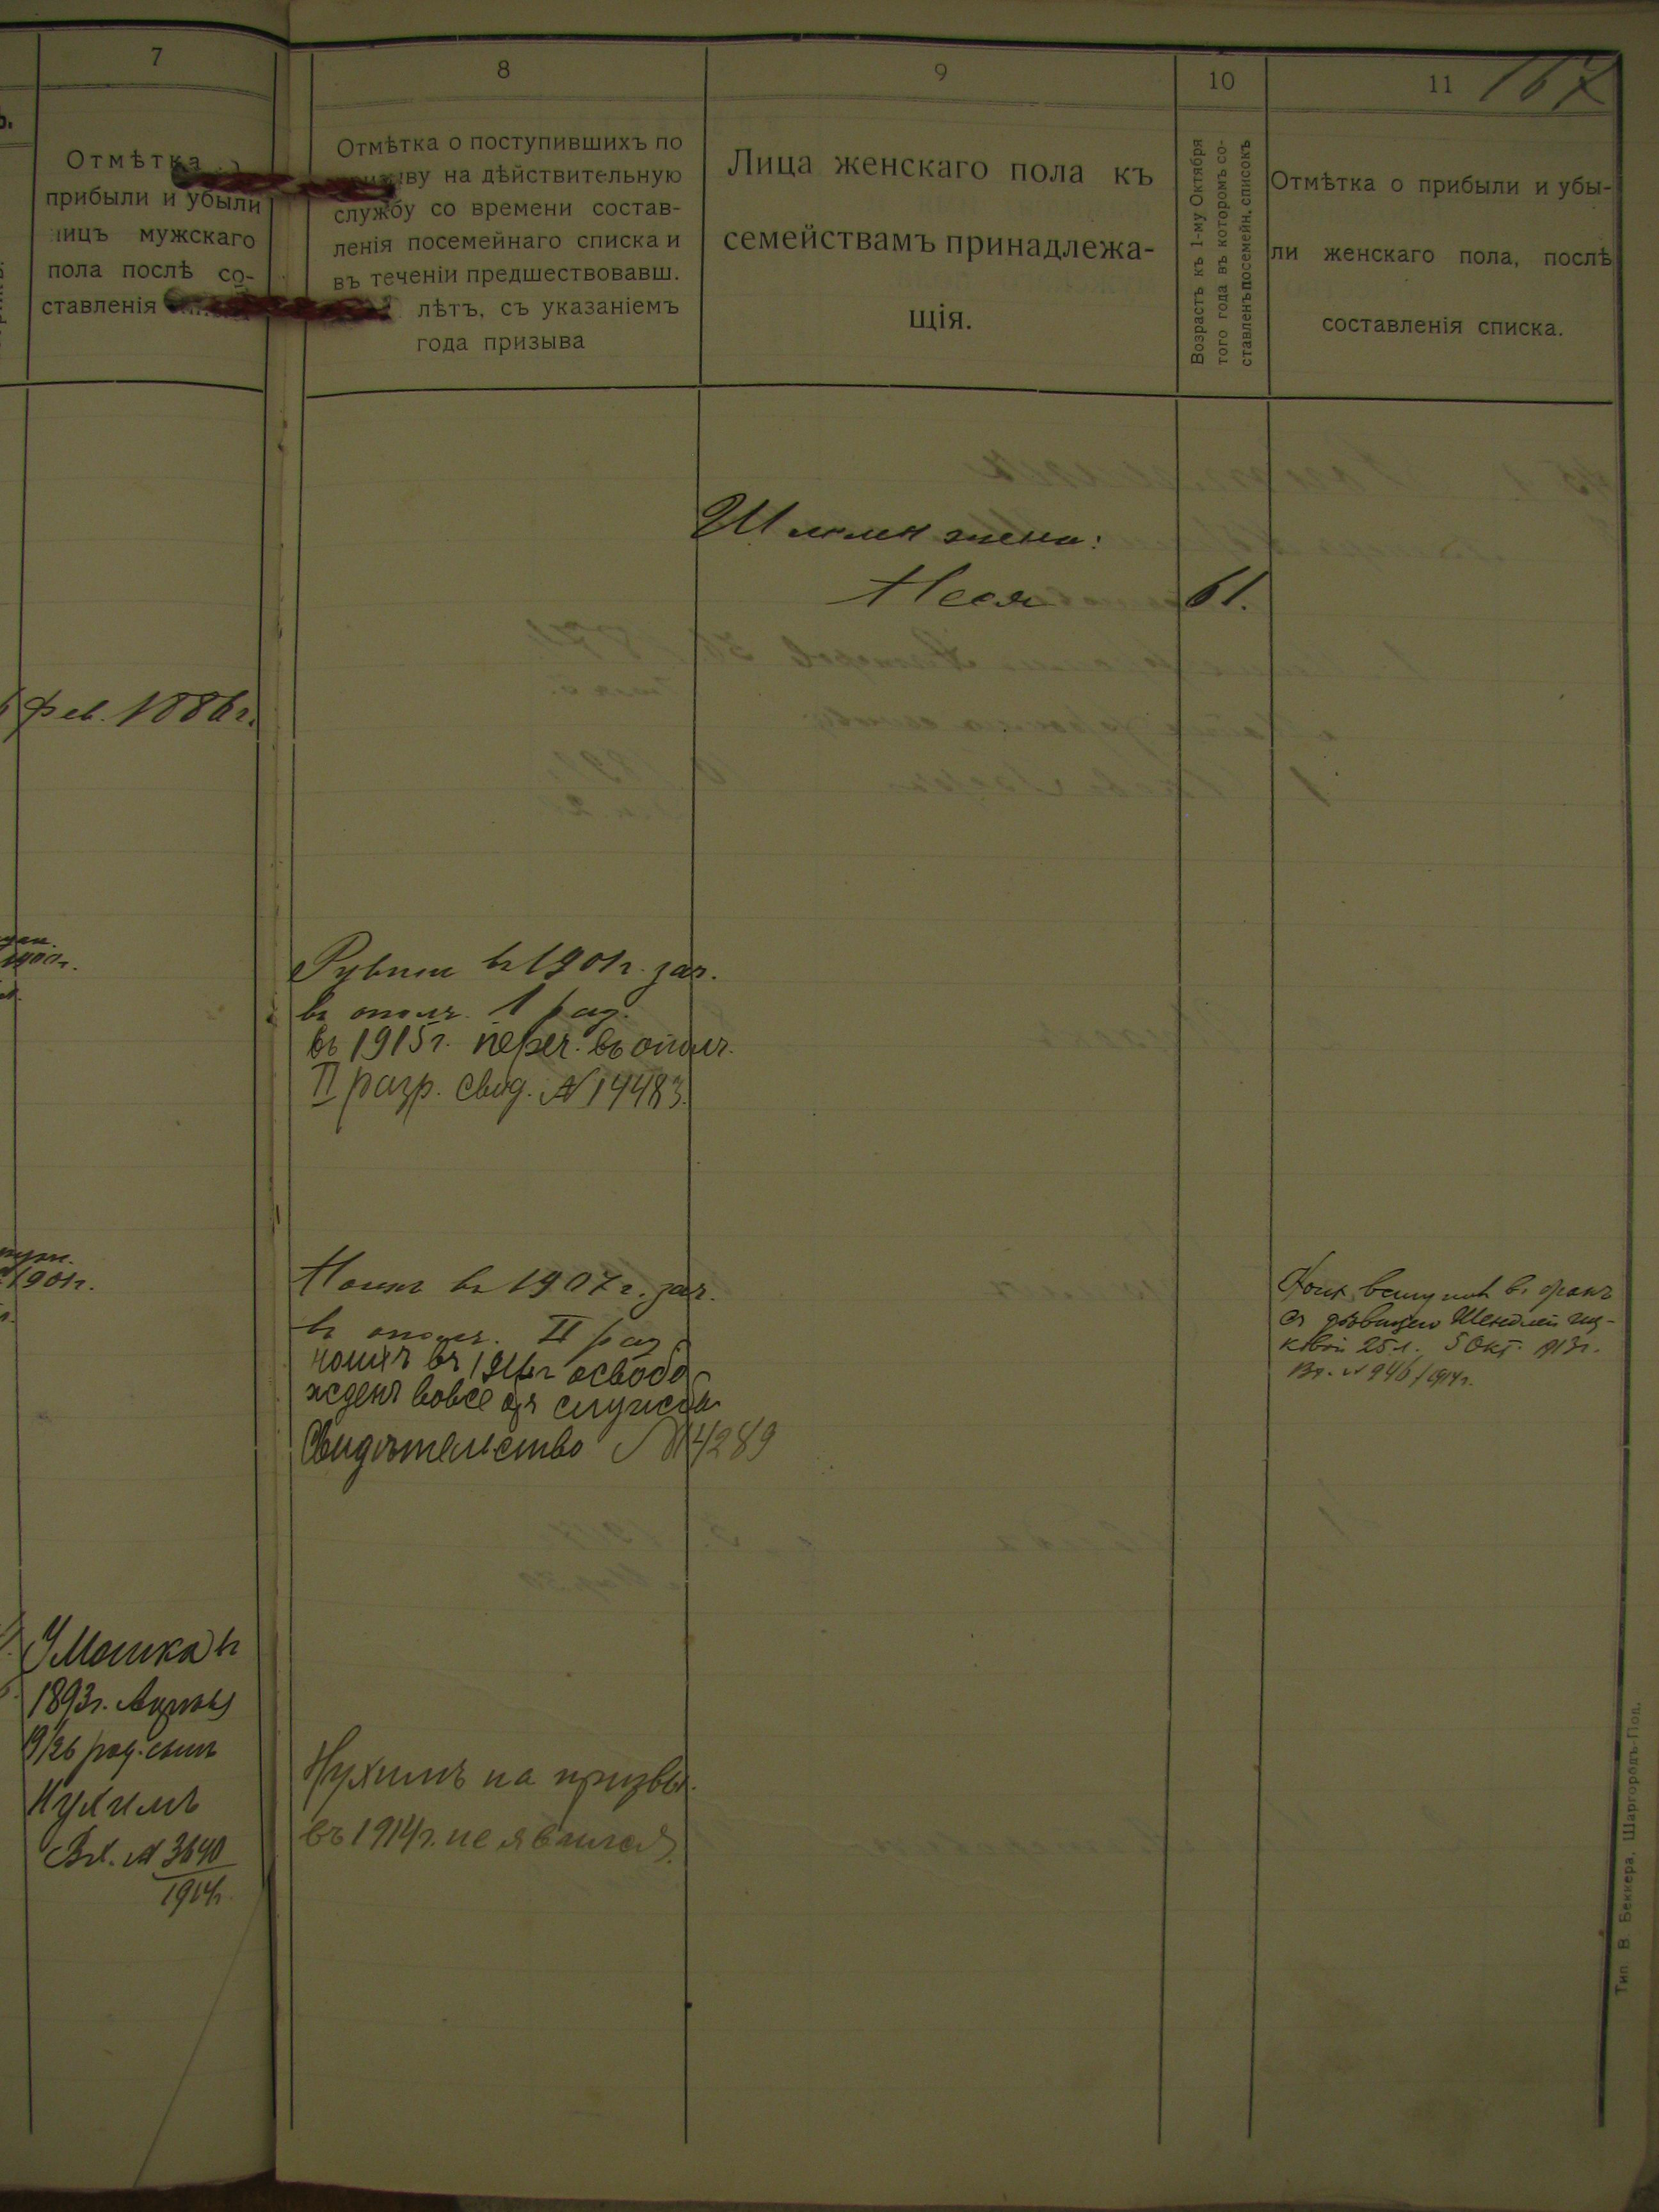 7
Отмѣтка о
прибыли и убыли
лицъ мужскаго
пола послѣ со-
ставленія
8
Отмѣтка о поступившихъ по
призыву на дѣйствительную
службу со времени состав-
ленія посемейнаго списка и
въ теченіи предшествовавш.
лѣтъ, съ указаніемъ
года призыва
9
Лица женскаго пола къ
семействамъ принадлежа-
щія.
10
Возрастъ къ 1-му Октября
того года въ которомъ со-
ставленъ посемейн. списокъ
11
Отмѣтка о прибыли и убы-
ли женскаго пола, послѣ
составленія списка.
167
жена:
Неся 61.
Фев. 1886 г.
1900 г.
Рувин въ 1901 г. зач.
въ ополч. 1 раз.
въ 1915 г. переч. въ ополч.
II разр. свид. № 14483.
1901 г.
въ 1907 г. зач.
въ ополч. II раз.
въ 1916 г. освобо
жденъ вовсе отъ службы
Свидѣтельство № 14289
вступив в. брак
съ дѣвицею
25 л. 5 Окт. 1913 г.
Вх. № 946/1914 г.
У Мошка въ
1893 г. Апрѣля
19/26 род. сынъ
Нухимъ
Вх. № 3640
1914 г.
Нухимъ на призывъ
въ 1914 г. не явился.
Тип. В. Беккера, Шаргородъ-Под.